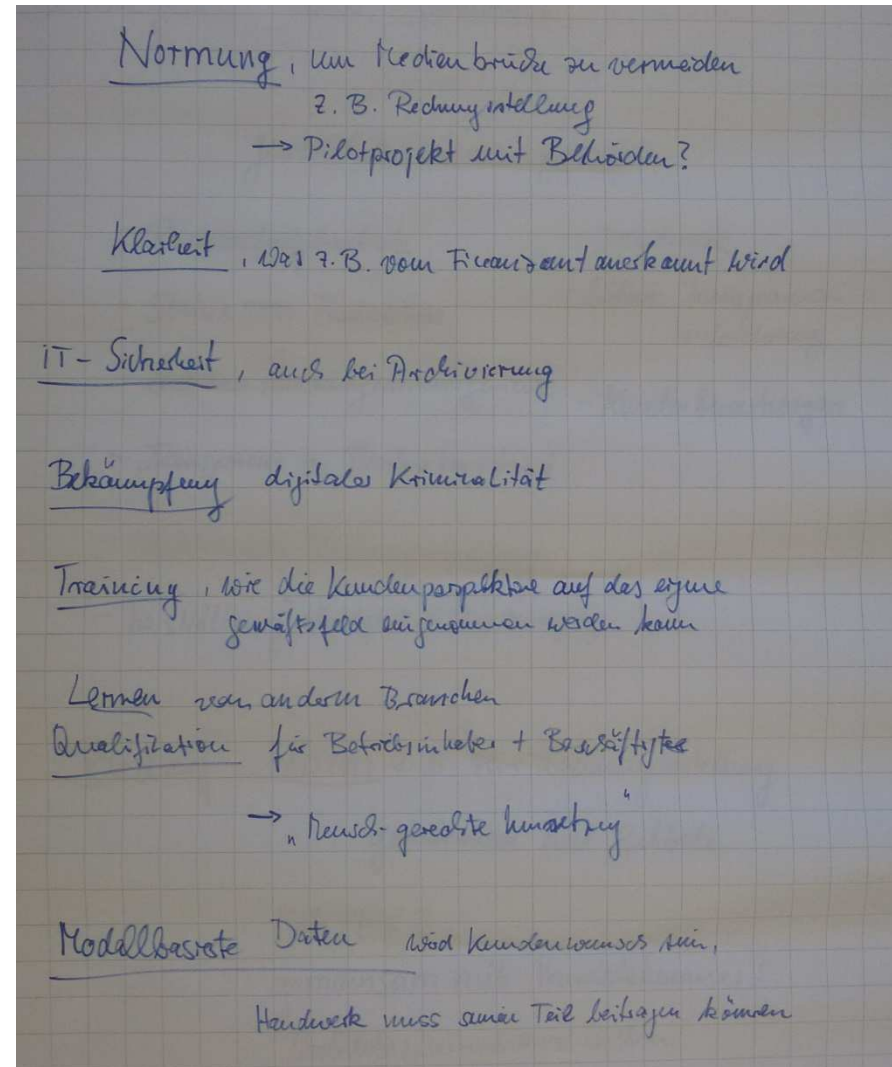 Normung, um Medienbrüche zu vermeiden
z. B. Rechnungsstellung
→ Pilotprojekt mit Behörden?
Klarheit, was z. B. vom Finanzamt anerkannt wird
IT-Sicherheit, auch bei Archivierung
Bekämpfung digitaler Kriminalität
Training, wie die Kundenperspektive auf das eigene
Geschäftsfeld eingenommen werden kann
Lernen von anderen Branchen
Qualifikation für Betriebsinhaber + Beschäftigte
→ „Mensch-gerechte Umsetzung"
Modellbasierte Daten wird Kundenwunsch sein,
Handwerk muss seinen Teil beitragen können